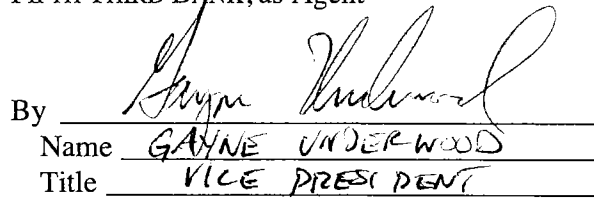 FIFTH THIRD BANK, as Agent
By Gayne Underwood
Name GAYNE UNDERWOOD
Title VICE PRESIDENT